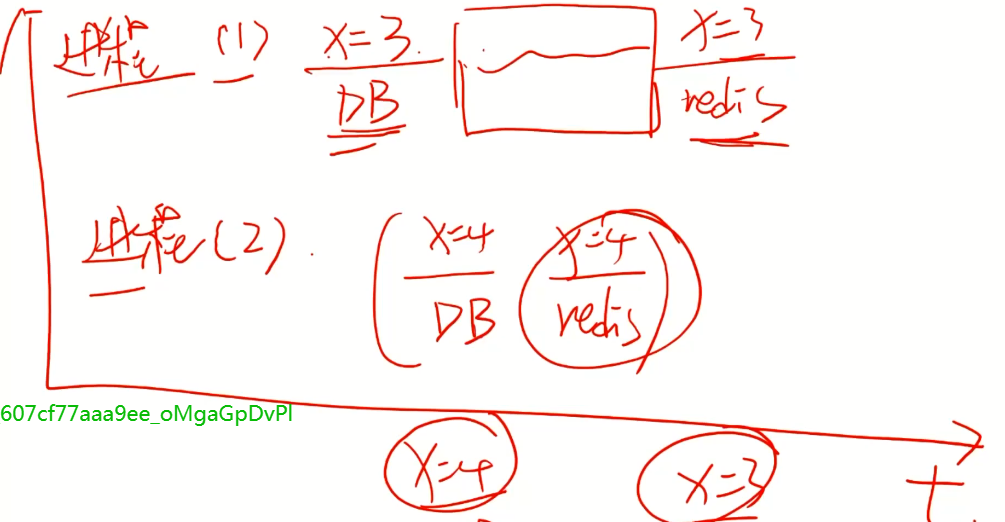 进程 (1) x=3 x=3
DB redis
进程 (2). x=4 x=4
DB redis
607cf77aaa9ee_oMgaGpDvPl
x=4 x=3 t